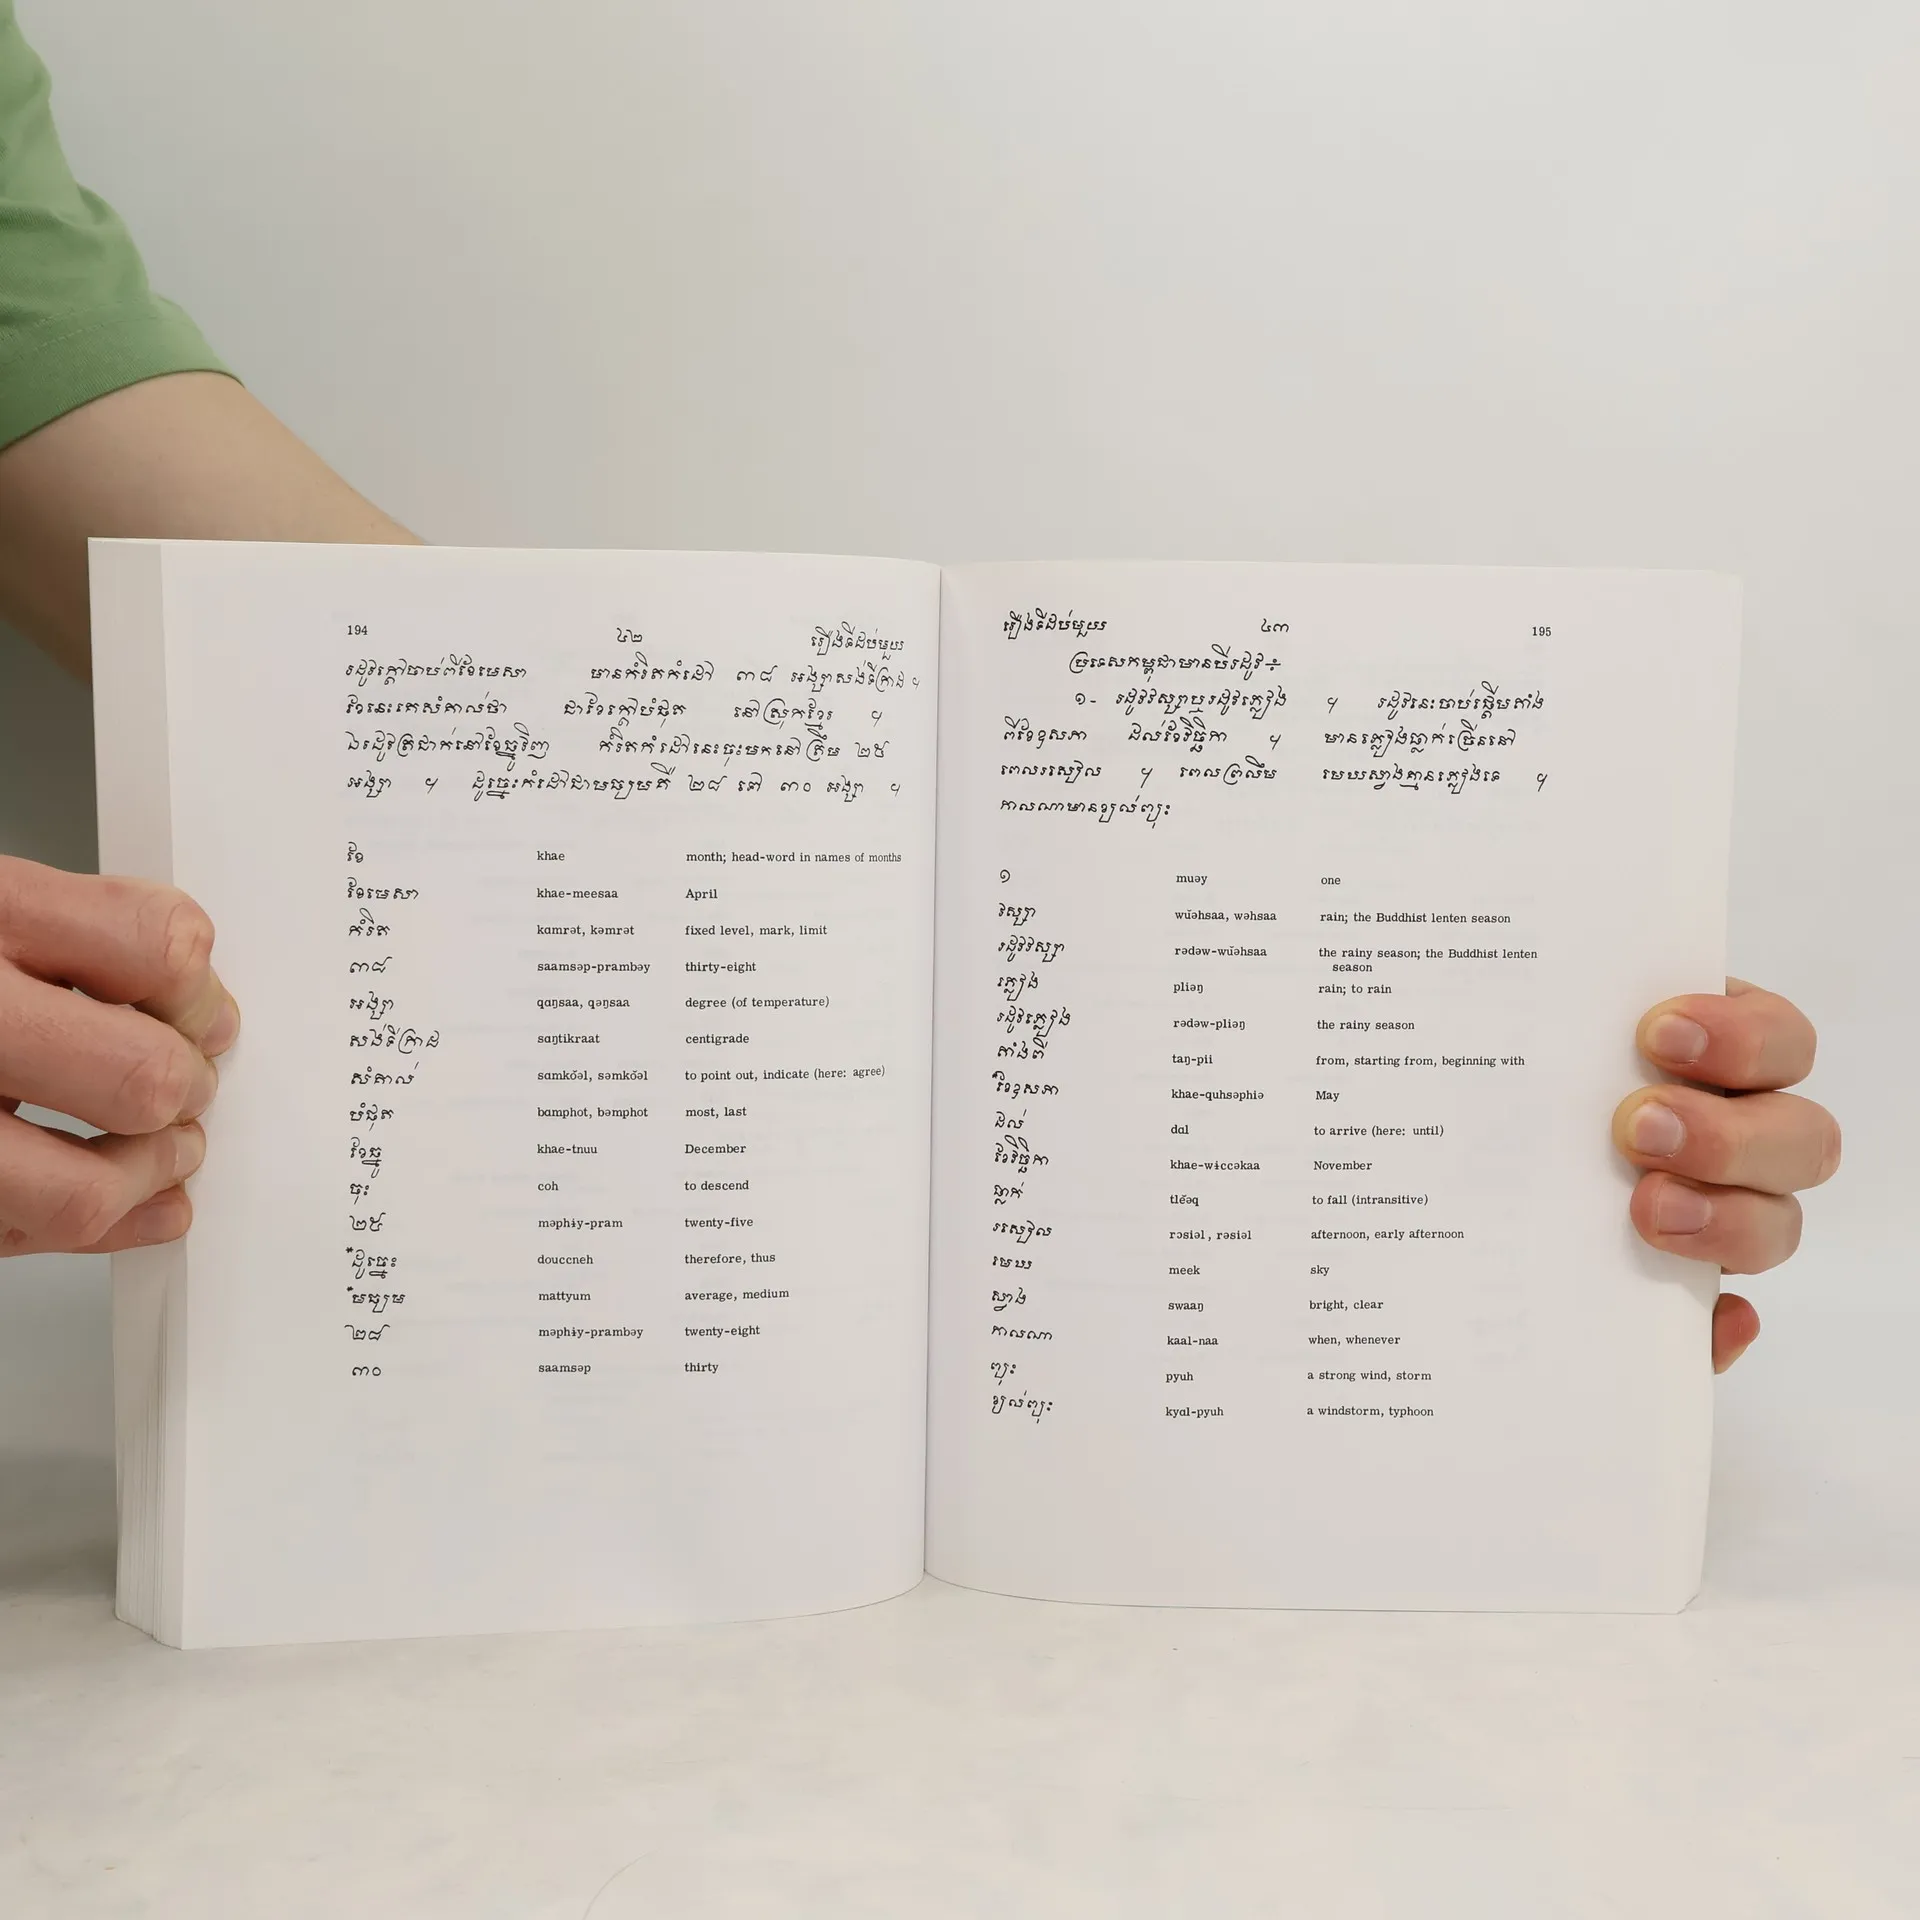 194 ៤២ រឿងទីដប់មួយ
រដូវក្តៅចាប់ពីខែមេសា មានកំរិតកំដៅ ៣៨ អង្សាសង់ទីក្រាដ ។
ខែនេះគេសំគាល់ថា ជាខែក្តៅបំផុត នៅស្រុកខ្មែរ ។
ឯរដូវត្រជាក់នៅខែធ្នូវិញ កំរិតកំដៅនេះចុះមកនៅត្រឹម ២៥
អង្សា ។ ដូច្នេះកំដៅជាមធ្យមគឺ ២៨ ទៅ ៣០ អង្សា ។
ខែ khae month; head-word in names of months
ខែមេសា khae-meesaa April
កំរិត kɑmrət, kəmrət fixed level, mark, limit
៣៨ saamsəp-prambəy thirty-eight
អង្សា qɑŋsaa, qəŋsaa degree (of temperature)
សង់ទីក្រាដ sɑŋtikraat centigrade
សំគាល់ sɑmkŏəl, səmkŏəl to point out, indicate (here: agree)
បំផុត bɑmphot, bəmphot most, last
ខែធ្នូ khae-tnuu December
ចុះ coh to descend
២៥ məphɨy-pram twenty-five
*ដូច្នេះ douccneh therefore, thus
*មធ្យម mattyum average, medium
២៨ məphɨy-prambəy twenty-eight
៣០ saamsəp thirty
រឿងទីដប់មួយ ៤៣ 195
ប្រទេសកម្ពុជាមានបីរដូវ÷
១- រដូវវស្សាឬរដូវភ្លៀង ។ រដូវនេះចាប់ផ្តើមតាំង
ពីខែឧសភា ដល់ខែវិច្ឆិកា ។ មានភ្លៀងធ្លាក់ច្រើននៅ
ពេលរសៀល ។ ពេលព្រលឹម មេឃស្វាងគ្មានភ្លៀងទេ ។
កាលណាមានខ្យល់ព្យុះ
១ muəy one
វស្សា wŭəhsaa, wəhsaa rain; the Buddhist lenten season
រដូវវស្សា rədəw-wŭəhsaa the rainy season; the Buddhist lenten
season
ភ្លៀង pliəŋ rain; to rain
រដូវភ្លៀង rədəw-pliəŋ the rainy season
តាំងពី taŋ-pii from, starting from, beginning with
*ខែឧសភា khae-quhsəphiə May
ដល់ dɑl to arrive (here: until)
ខែវិច្ឆិកា khae-wɨccəkaa November
ធ្លាក់ tlĕəq to fall (intransitive)
រសៀល rɔsiəl, rəsiəl afternoon, early afternoon
មេឃ meek sky
ស្វាង swaaŋ bright, clear
កាលណា kaal-naa when, whenever
ព្យុះ pyuh a strong wind, storm
ខ្យល់ព្យុះ kyɑl-pyuh a windstorm, typhoon